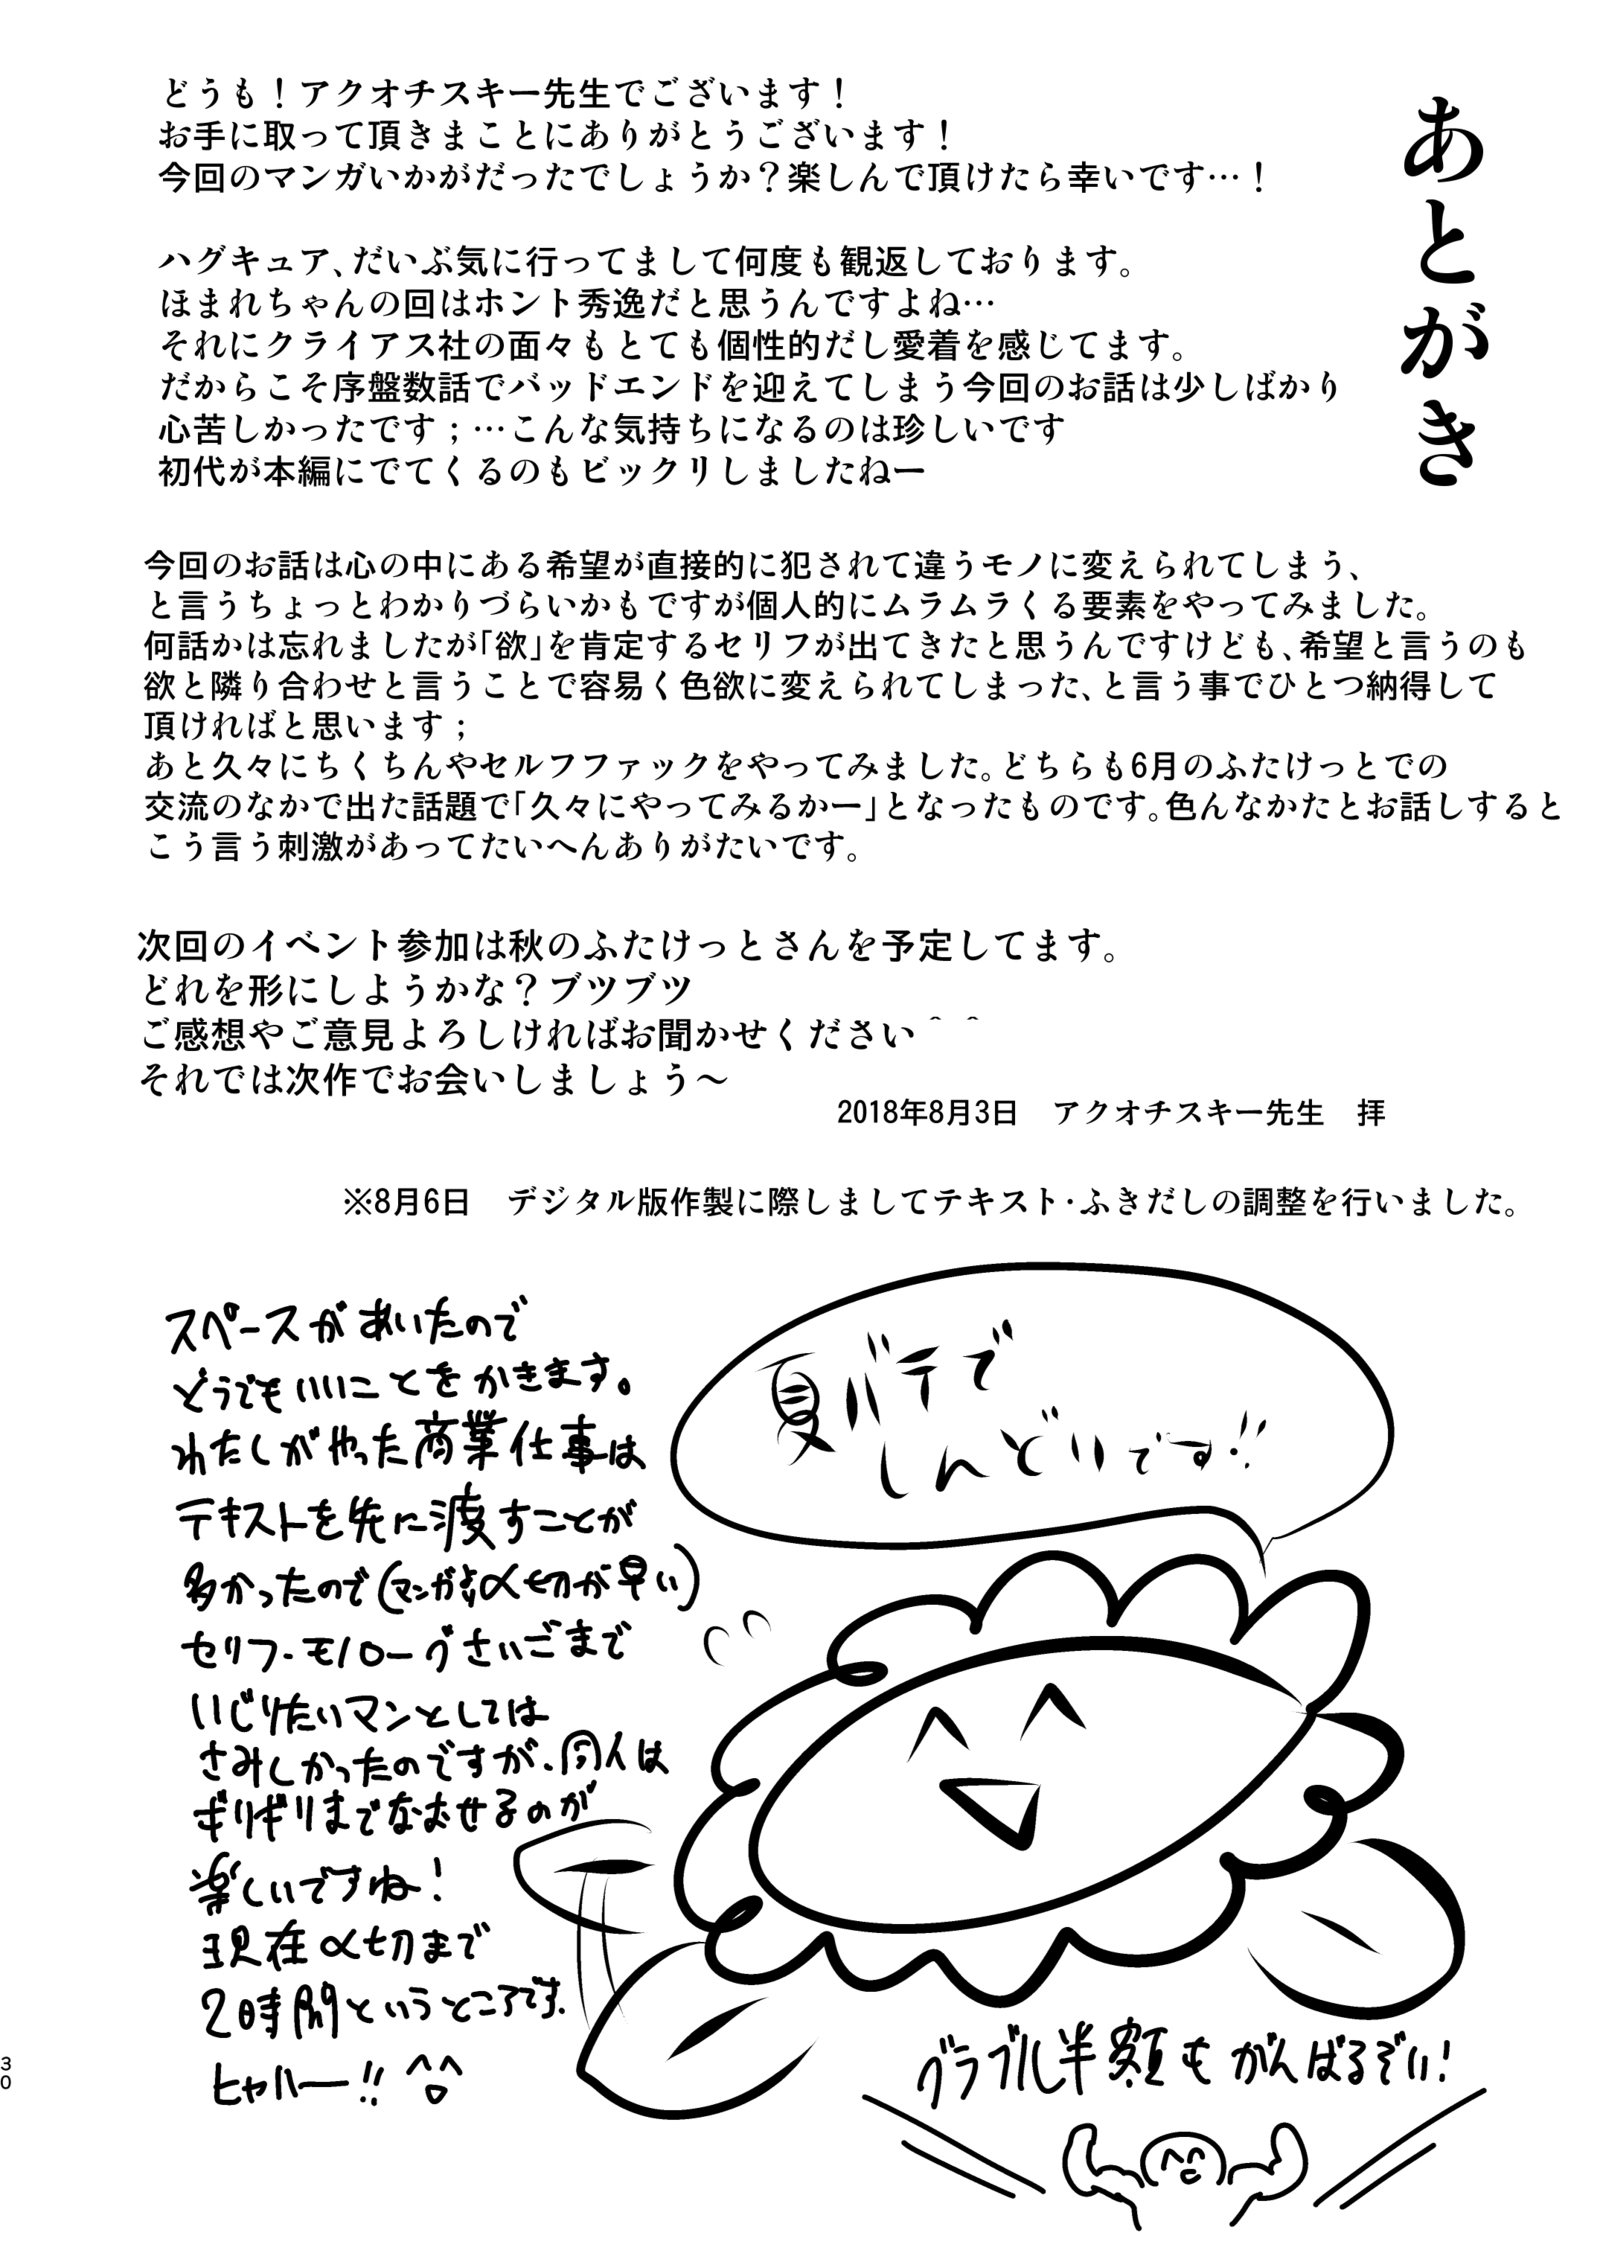 あとがき
どうも！アクオチスキー先生でございます！
お手に取って頂きまことにありがとうございます！
今回のマンガいかがだったでしょうか？楽しんで頂けたら幸いです…！
ハグキュア、だいぶ気に行ってまして何度も観返しております。
ほまれちゃんの回はホント秀逸だと思うんですよね…
それにクライアス社の面々もとても個性的だし愛着を感じてます。
だからこそ序盤数話でバッドエンドを迎えてしまう今回のお話は少しばかり
心苦しかったです；…こんな気持ちになるのは珍しいです
初代が本編にでてくるのもビックリしましたねー
今回のお話は心の中にある希望が直接的に犯されて違うモノに変えられてしまう、
と言うちょっとわかりづらいかもですが個人的にムラムラくる要素をやってみました。
何話かは忘れましたが「欲」を肯定するセリフが出てきたと思うんですけども、希望と言うのも
欲と隣り合わせと言うことで容易く色欲に変えられてしまった、と言う事でひとつ納得して
頂ければと思います；
あと久々にちくちんやセルフファックをやってみました。どちらも6月のふたけっとでの
交流のなかで出た話題で「久々にやってみるかー」となったものです。色んなかたとお話しすると
こう言う刺激があってたいへんありがたいです。
次回のイベント参加は秋のふたけっとさんを予定してます。
どれを形にしようかな？ブツブツ
ご感想やご意見よろしければお聞かせください＾＾
それでは次作でお会いしましょう～
2018年8月3日　アクオチスキー先生　拝
※8月6日　デジタル版作製に際しましてテキスト・ふきだしの調整を行いました。
夏バテで
しんどいです!!
スペースがあいたので
どうでもいいことをかきます。
わたしがやった商業仕事は
テキストを先に渡すことが
多かったので(マンガより〆切が早い)
セリフ・モノローグさいごまで
いじりたいマンとしては
さみしかったのですが、同人は
ギリギリまでなおせるのが
楽しいですね!
現在〆切まで
2時間というところです。
ヒャハー!!
グラブル半額もがんばるぞい!
30